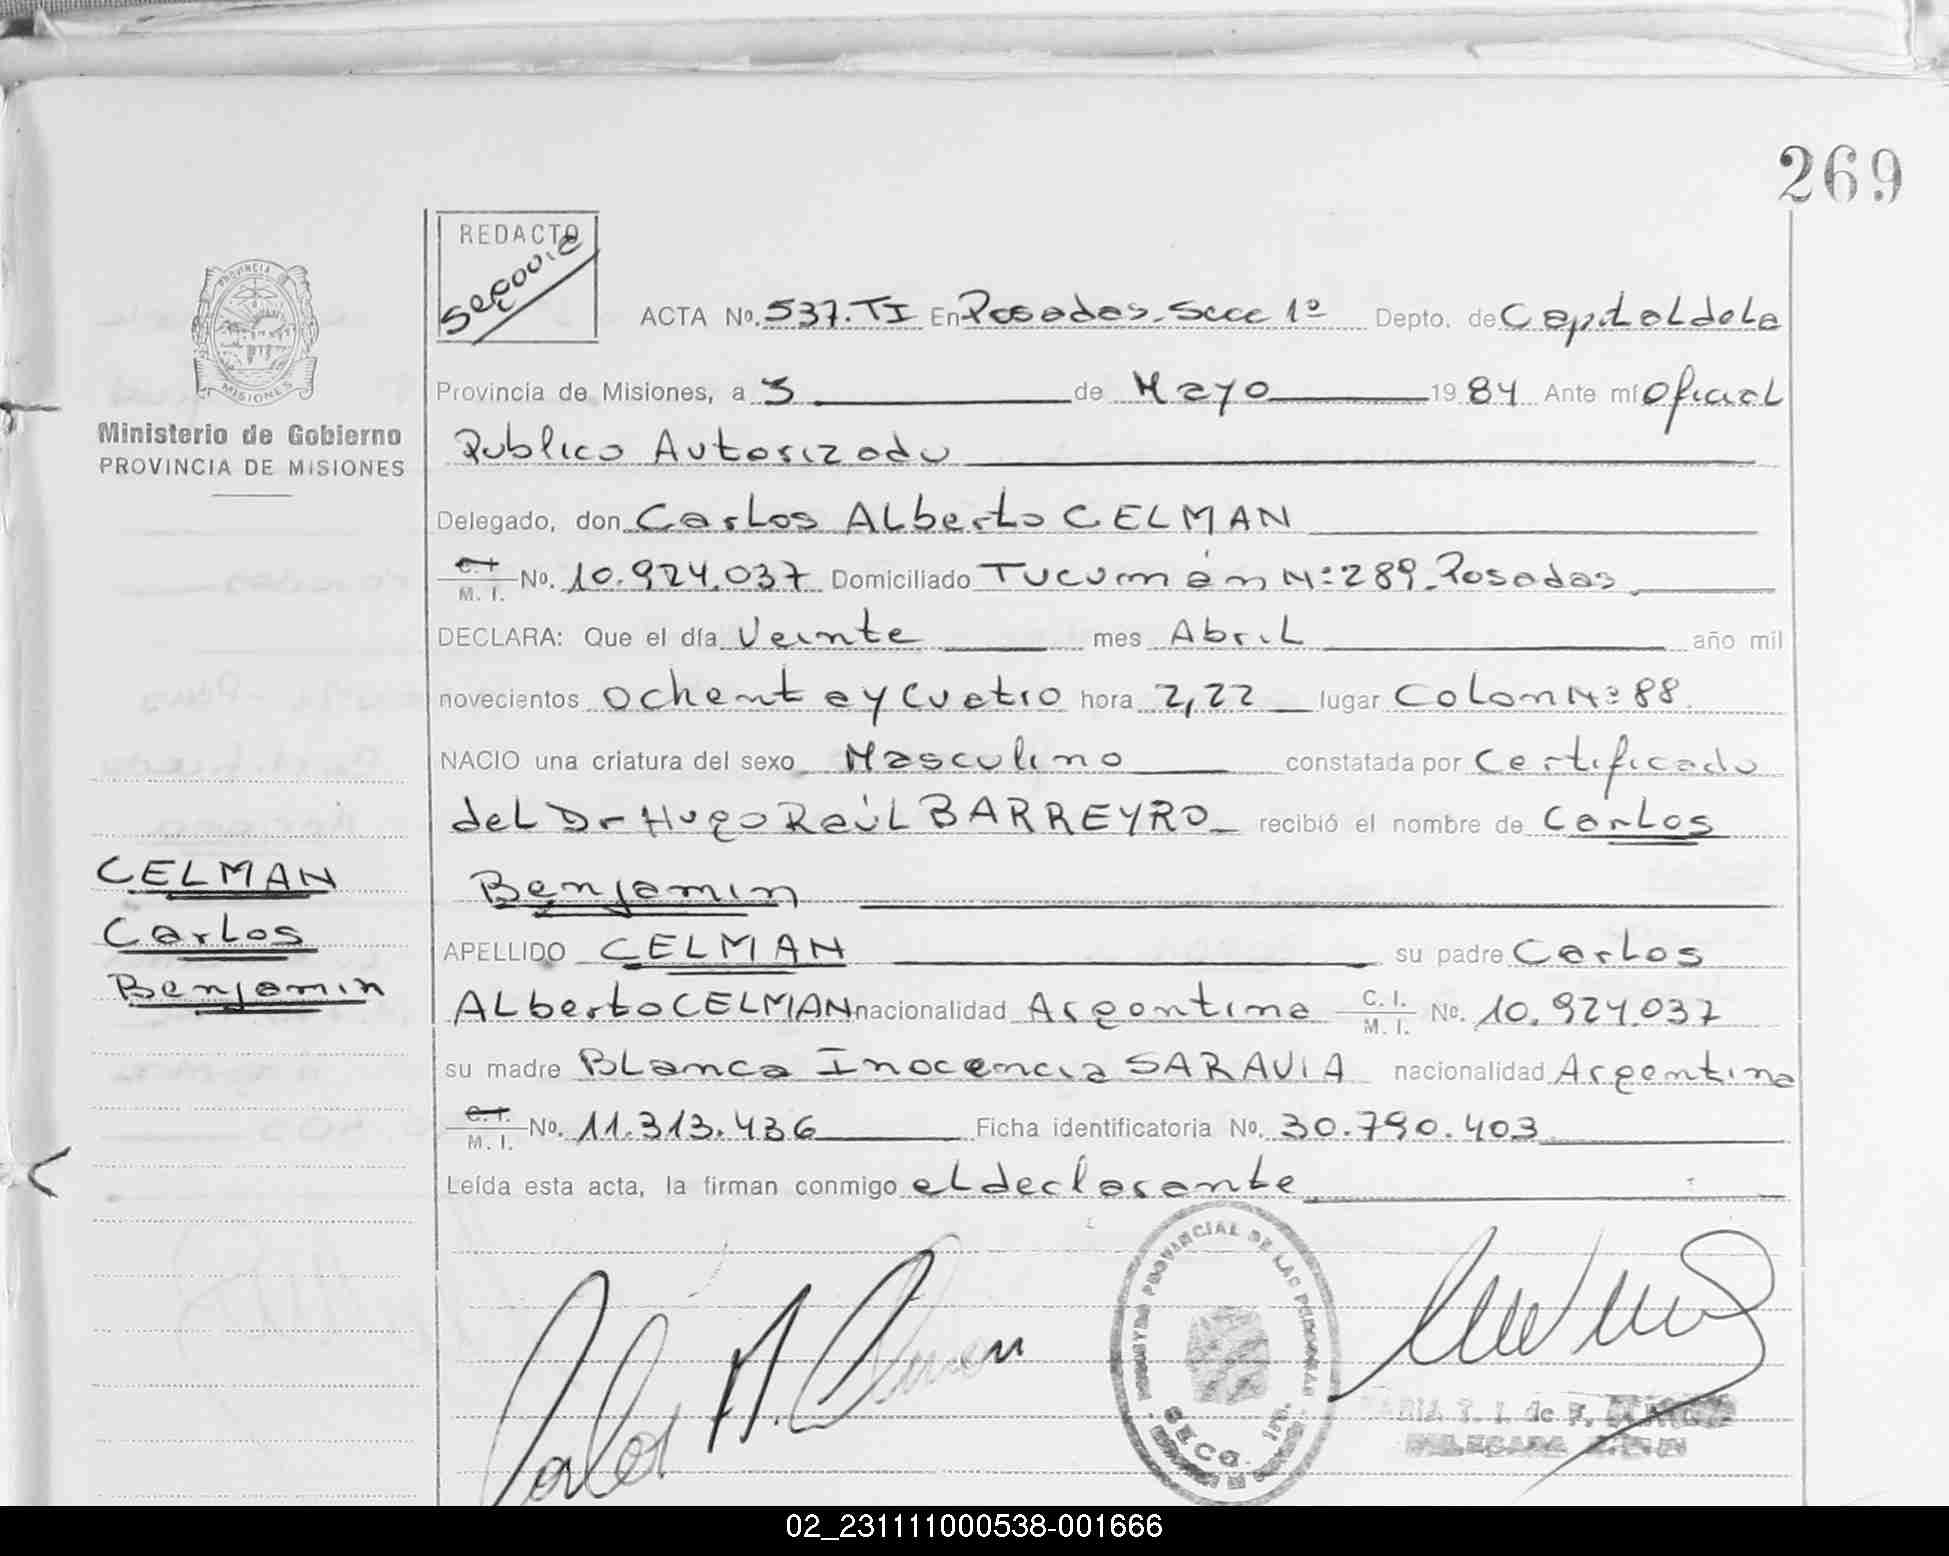 269
REDACTO
Segovia
ACTA Nº. 537. TI En Posadas. Secc 1º Depto. de Capital de la
Provincia de Misiones, a 3 de Mayo 1984 Ante mí Oficial
Publico Autorizado
Delegado, don Carlos ALberto CELMAN
C. I. M. I. Nº. 10.924.037 Domiciliado Tucumán Nº 289 - Posadas
DECLARA: Que el día Veinte mes Abril año mil
novecientos Ochenta y Cuatro hora 2,22 lugar Colon Nº 88
NACIO una criatura del sexo Masculino constatada por Certificado
del Dr Hugo Raúl BARREYRO recibió el nombre de Carlos
Benjamin
APELLIDO CELMAN su padre Carlos
ALberto CELMAN nacionalidad Argentina C. I. M. I. Nº. 10.924.037
su madre Blanca Inocencia SARAVIA nacionalidad Argentina
C. I. M. I. Nº. 11.313.436 Ficha identificatoria Nº. 30.790.403
Leída esta acta, la firman conmigo el declarante
PROVINCIA DE
MISIONES
Ministerio de Gobierno
PROVINCIA DE MISIONES
CELMAN
Carlos
Benjamin
Carlos A. Celman
PROVINCIAL DE LAS PERSONAS
SECC. 1ra.
de F.
DELEGADA
02_231111000538-001666